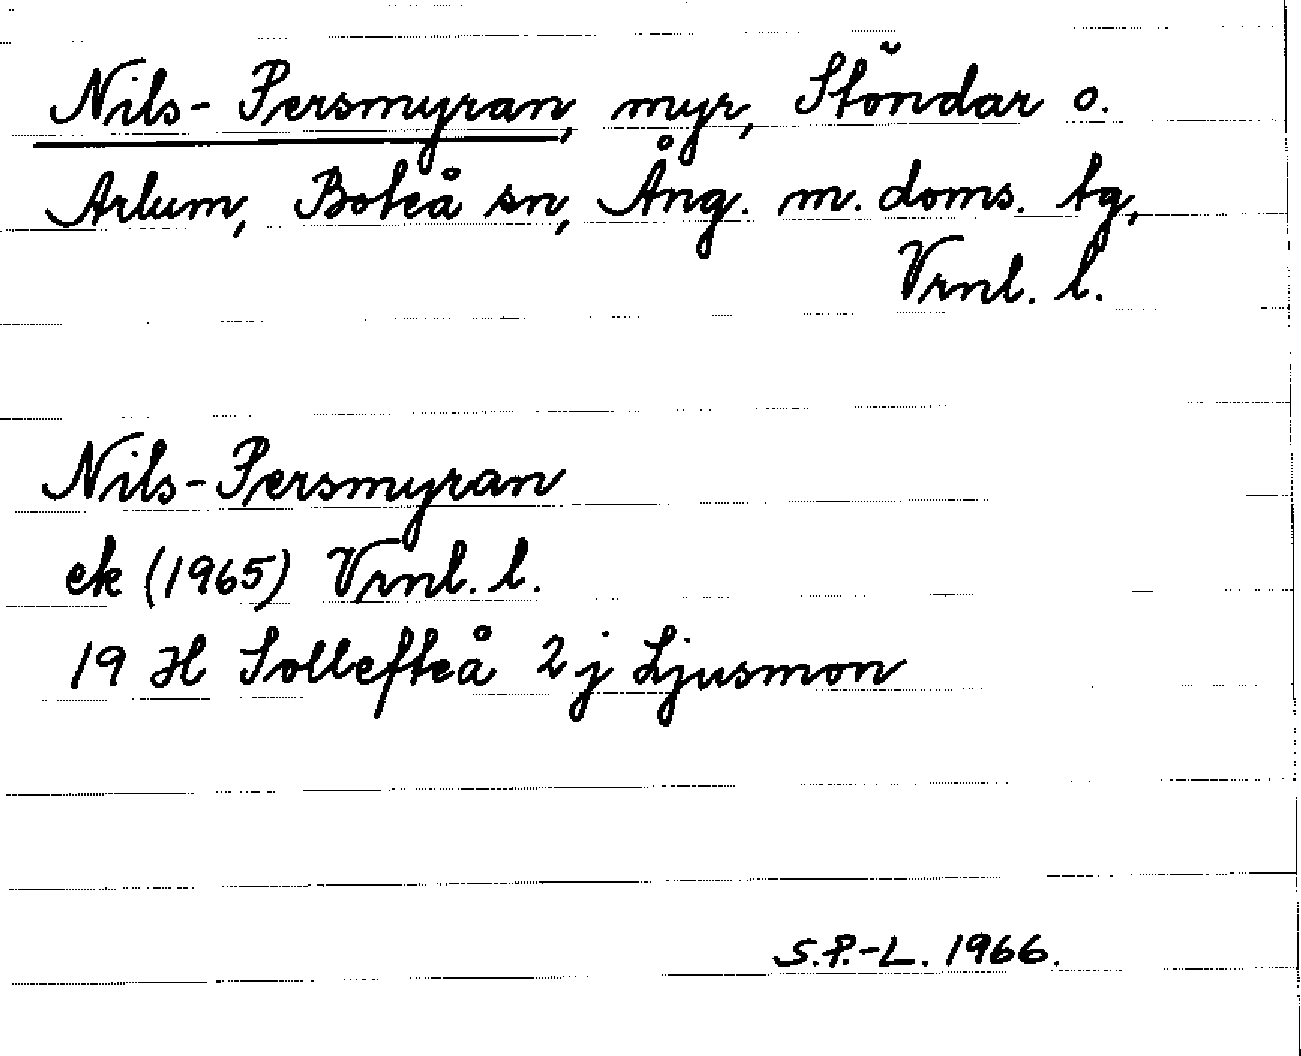 Nils-Persmyran, myr, Stöndar o.
Arlum, Boteå sn, Ång. m. doms. tg,
Vrnl. l.
Nils-Persmyran
ek (1965) Vrnl. l.
19 H Sollefteå 2 j Ljusmon
S.P.-L. 1966.